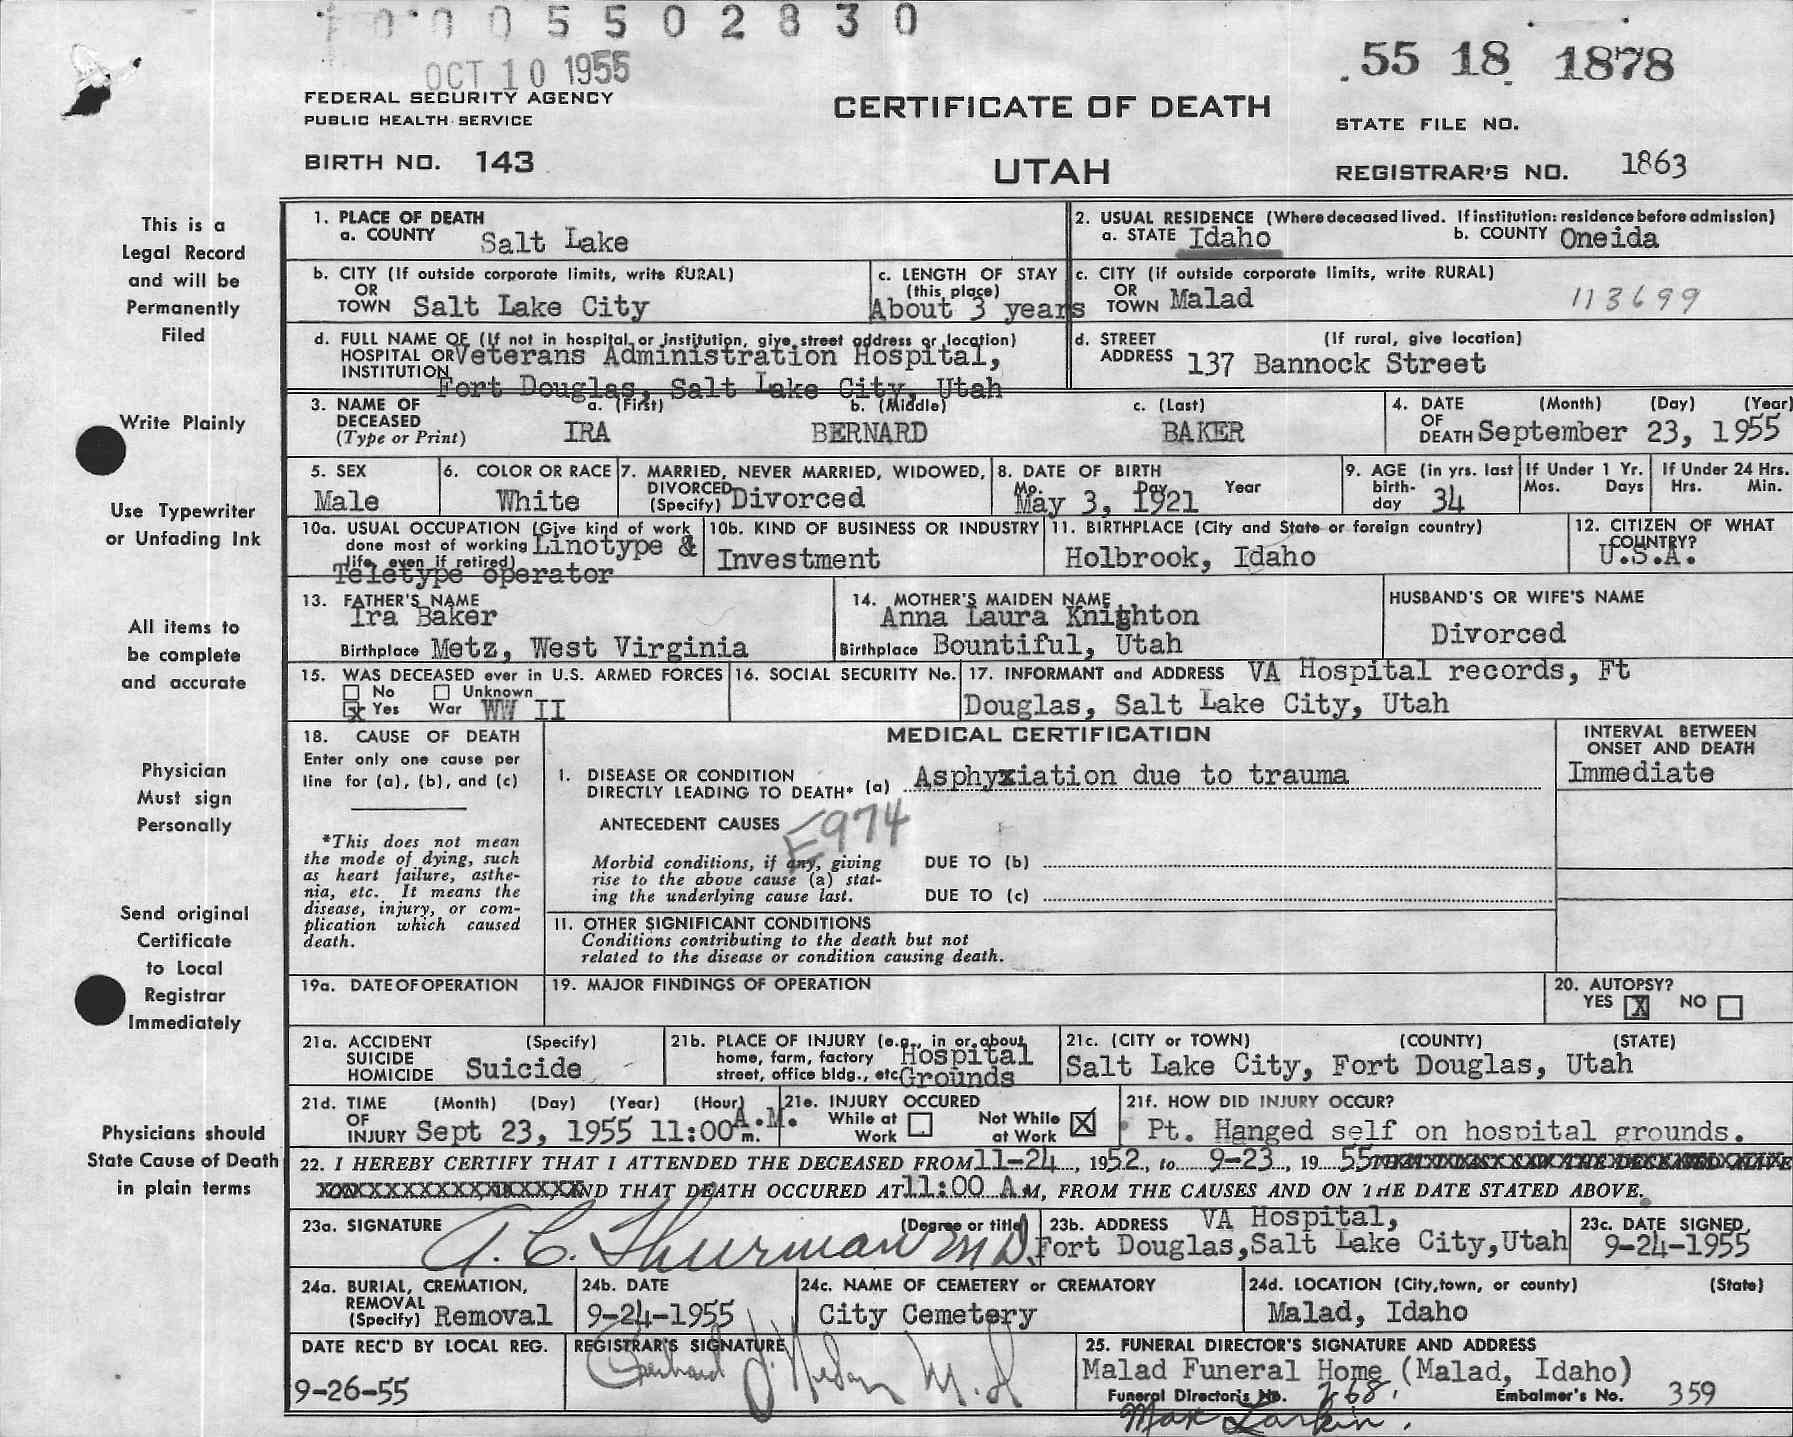 0 0 0 5 5 0 2 8 3 0
OCT 10 1955
55 18 1878
FEDERAL SECURITY AGENCY
PUBLIC HEALTH SERVICE
CERTIFICATE OF DEATH
STATE FILE NO.
BIRTH NO. 143
UTAH
REGISTRAR'S NO. 1863
This is a
Legal Record
and will be
Permanently
Filed
Write Plainly
Use Typewriter
or Unfading Ink
All items to
be complete
and accurate
Physician
Must sign
Personally
Send original
Certificate
to Local
Registrar
Immediately
Physicians should
State Cause of Death
in plain terms
1. PLACE OF DEATH
a. COUNTY Salt Lake
2. USUAL RESIDENCE (Where deceased lived. If institution: residence before admission)
a. STATE Idaho b. COUNTY Oneida
b. CITY (If outside corporate limits, write RURAL)
OR
TOWN Salt Lake City
c. LENGTH OF STAY
(this place)
About 3 years
c. CITY (if outside corporate limits, write RURAL)
OR
TOWN Malad
113699
d. FULL NAME OF (If not in hospital or institution, give street address or location)
HOSPITAL OR Veterans Administration Hospital,
INSTITUTION Fort Douglas, Salt Lake City, Utah
d. STREET (If rural, give location)
ADDRESS 137 Bannock Street
3. NAME OF a. (First) b. (Middle) c. (Last)
DECEASED
(Type or Print) IRA BERNARD BAKER
4. DATE (Month) (Day) (Year)
OF
DEATH September 23, 1955
5. SEX
Male
6. COLOR OR RACE
White
7. MARRIED, NEVER MARRIED, WIDOWED,
DIVORCED
(Specify) Divorced
8. DATE OF BIRTH
Mo. Day Year
May 3, 1921
9. AGE (in yrs. last
birth-
day 34
If Under 1 Yr.
Mos. Days
If Under 24 Hrs.
Hrs. Min.
10a. USUAL OCCUPATION (Give kind of work
done most of working Linotype &
life, even if retired)
Teletype operator
10b. KIND OF BUSINESS OR INDUSTRY
Investment
11. BIRTHPLACE (City and State or foreign country)
Holbrook, Idaho
12. CITIZEN OF WHAT
COUNTRY?
U.S.A.
13. FATHER'S NAME
Ira Baker
Birthplace Metz, West Virginia
14. MOTHER'S MAIDEN NAME
Anna Laura Knighton
Birthplace Bountiful, Utah
HUSBAND'S OR WIFE'S NAME
Divorced
15. WAS DECEASED ever in U.S. ARMED FORCES
No Unknown
x Yes War WW II
16. SOCIAL SECURITY No.
17. INFORMANT and ADDRESS VA Hospital records, Ft
Douglas, Salt Lake City, Utah
18. CAUSE OF DEATH
Enter only one cause per
line for (a), (b), and (c)
*This does not mean
the mode of dying, such
as heart failure, asthe-
nia, etc. It means the
disease, injury, or com-
plication which caused
death.
MEDICAL CERTIFICATION
INTERVAL BETWEEN
ONSET AND DEATH
I. DISEASE OR CONDITION
DIRECTLY LEADING TO DEATH* (a) Asphyxiation due to trauma
Immediate
ANTECEDENT CAUSES
E974
Morbid conditions, if any, giving
rise to the above cause (a) stat-
ing the underlying cause last.
DUE TO (b)
DUE TO (c)
II. OTHER SIGNIFICANT CONDITIONS
Conditions contributing to the death but not
related to the disease or condition causing death.
19a. DATE OF OPERATION
19. MAJOR FINDINGS OF OPERATION
20. AUTOPSY?
YES X NO
21a. ACCIDENT (Specify)
SUICIDE
HOMICIDE Suicide
21b. PLACE OF INJURY (e.g., in or about
home, farm, factory Hospital
street, office bldg., etc Grounds
21c. (CITY or TOWN) (COUNTY) (STATE)
Salt Lake City, Fort Douglas, Utah
21d. TIME (Month) (Day) (Year) (Hour)
OF
INJURY Sept 23, 1955 11:00 A.M. m.
21e. INJURY OCCURED
While at Not While
Work at Work X
21f. HOW DID INJURY OCCUR?
Pt. Hanged self on hospital grounds.
22. I HEREBY CERTIFY THAT I ATTENDED THE DECEASED FROM 11-24, 1952, to 9-23, 19 55
AND THAT DEATH OCCURED AT 11:00 A.M, FROM THE CAUSES AND ON THE DATE STATED ABOVE.
23a. SIGNATURE (Degree or title)
A. C. Thurman M D.
23b. ADDRESS VA Hospital,
Fort Douglas, Salt Lake City, Utah
23c. DATE SIGNED
9-24-1955
24a. BURIAL, CREMATION,
REMOVAL
(Specify) Removal
24b. DATE
9-24-1955
24c. NAME OF CEMETERY or CREMATORY
City Cemetery
24d. LOCATION (City, town, or county) (State)
Malad, Idaho
DATE REC'D BY LOCAL REG.
9-26-55
REGISTRAR'S SIGNATURE
M.D
25. FUNERAL DIRECTOR'S SIGNATURE AND ADDRESS
Malad Funeral Home (Malad, Idaho)
Funeral Director's No. 268. Embalmer's No. 359
Max Larkin.